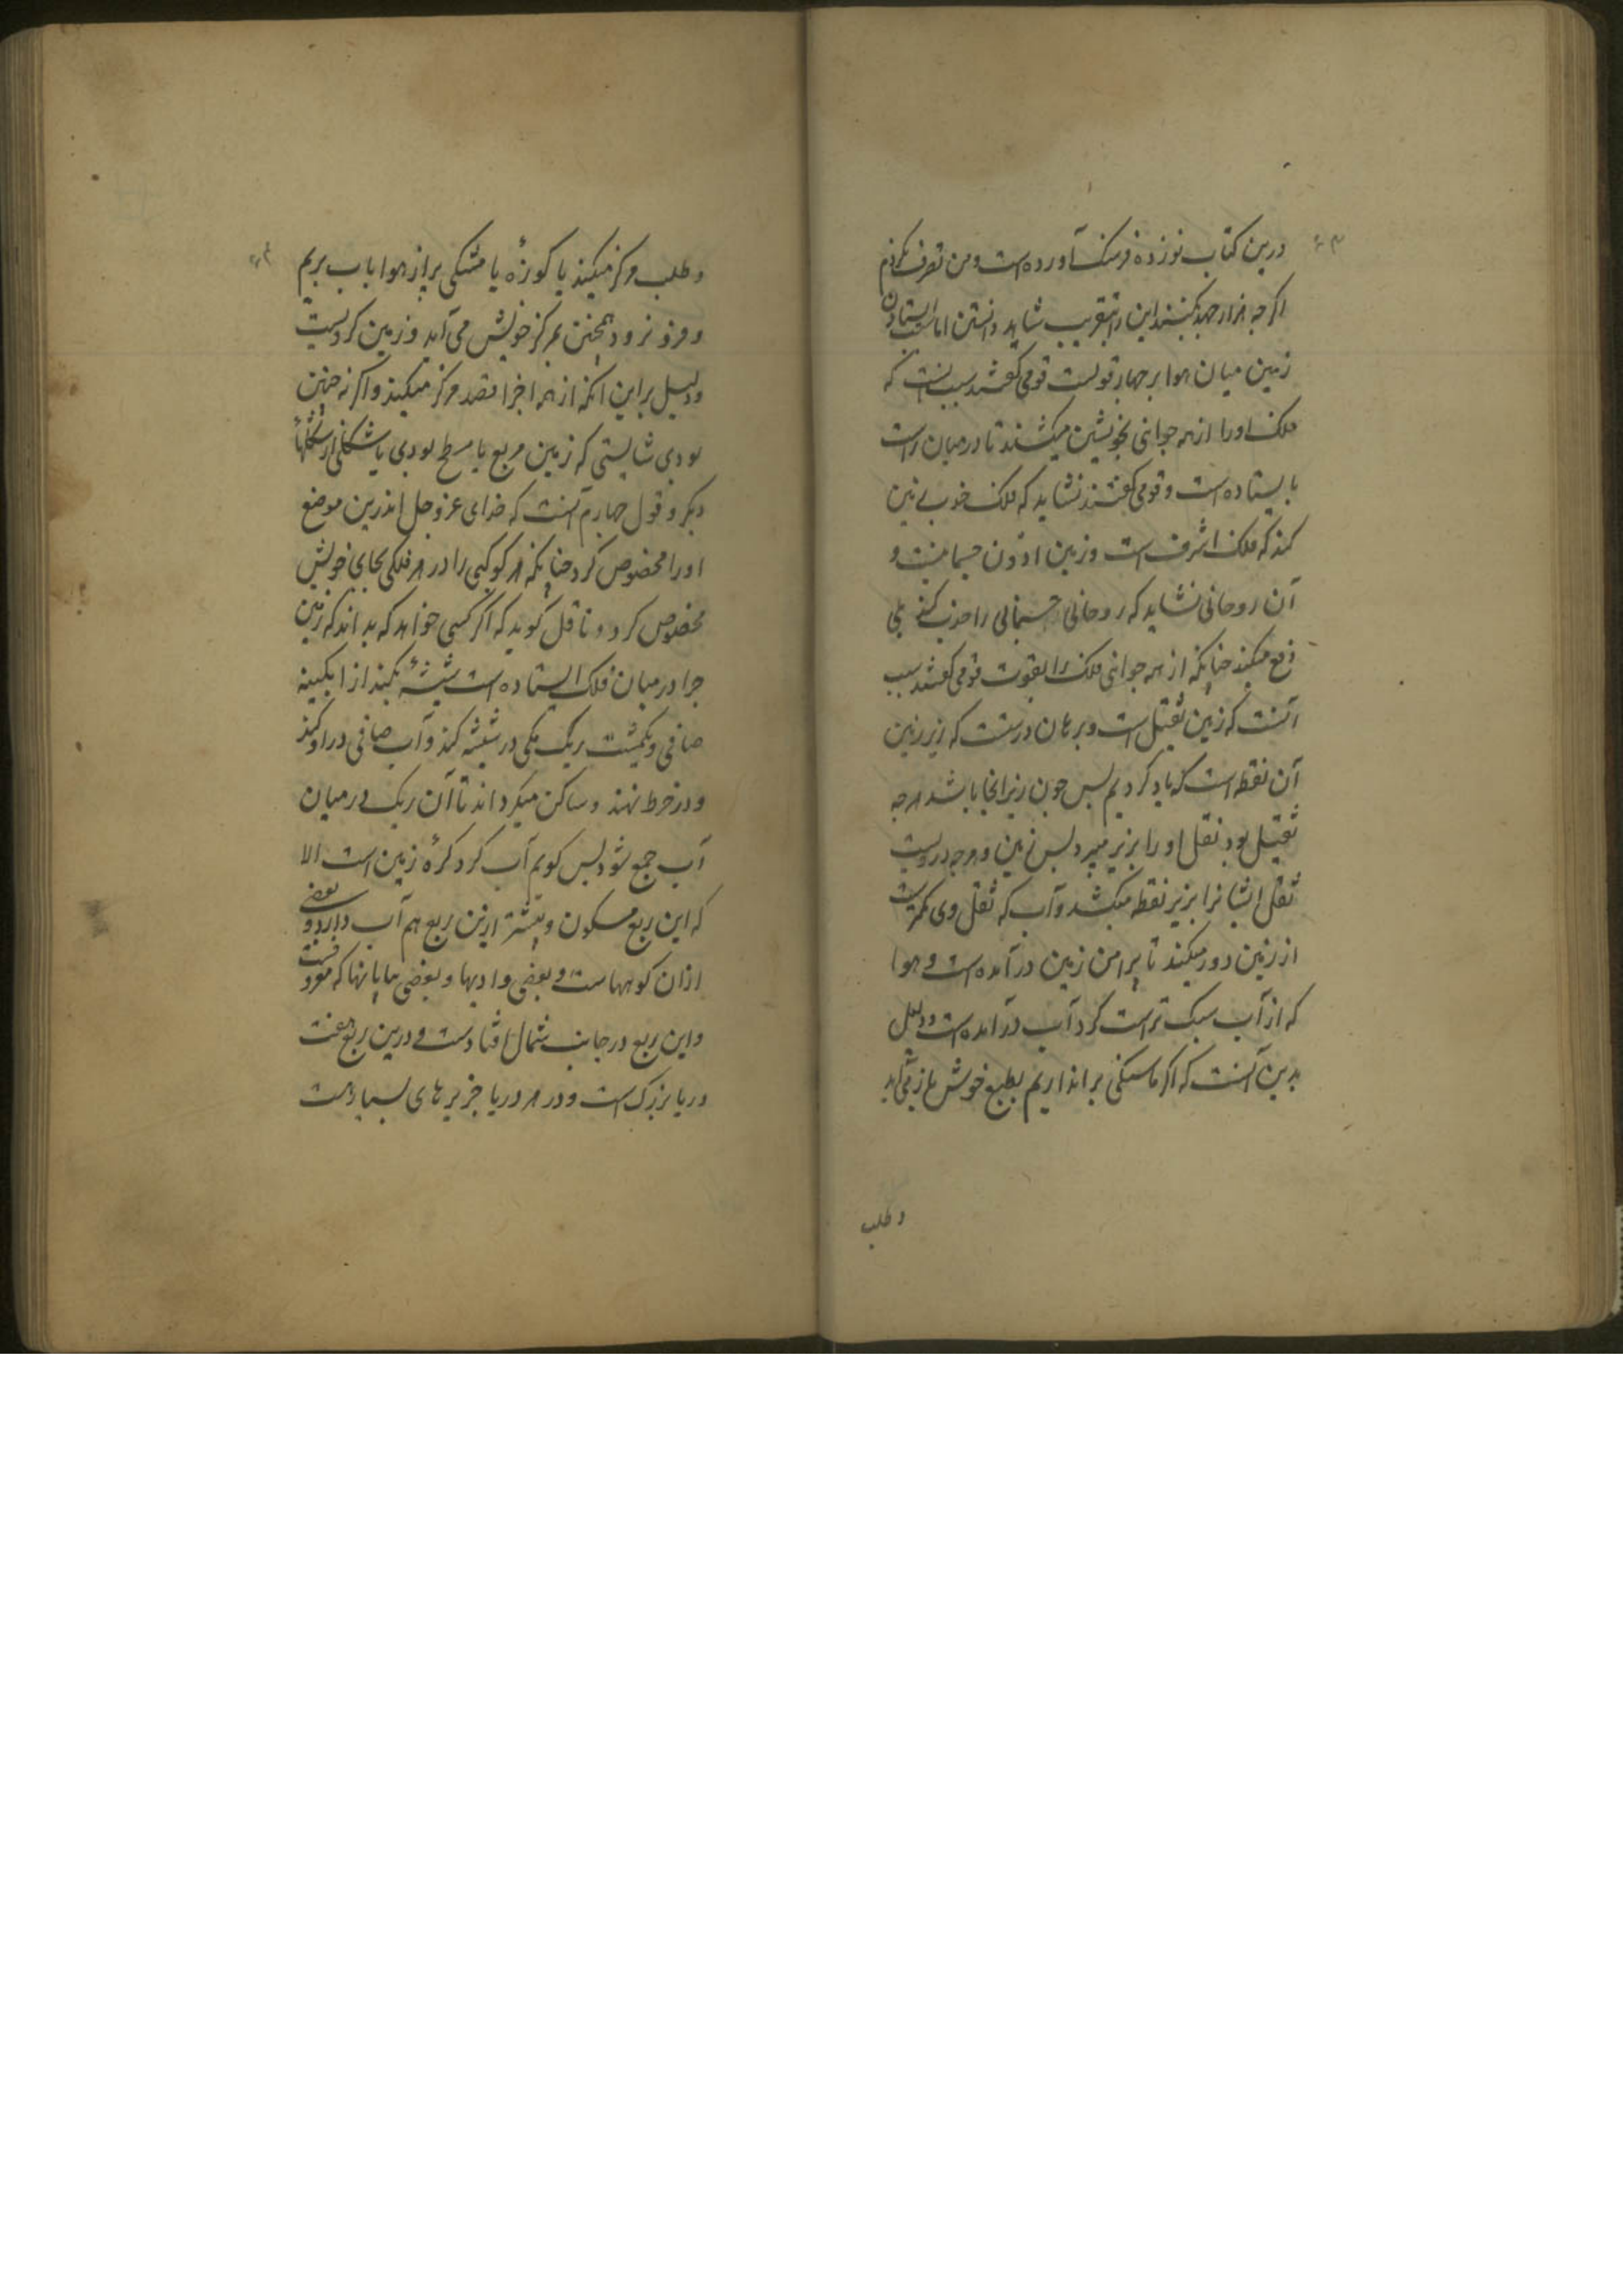 درین کتاب نوزده فرسنک آورده است و من تصرف نکردم
اکر جه هزار جهد کنند این را بتقریب شاید دانستن اما ایستادن
زمین میان هوا بر جهار قولست قومی کفتند سبب آنست که
فلک او را از همه جوانی بخویشتن میکشند تا در میان راست
بایستاده است و قومی کفتند نشاید که فلک خوب
کند که فلک اشرف است و زمین ادون جسمانیست و
آن روحانی نشاید که روحانی جسمانی را جذب کند بلی
دفع میکند جنانکه از همه جوانی فلک را بقوت قومی کفتند سبب
آنست که زمین ثقیل است و برهان درست که زیر زمین
آن نقطه است که یاد کردیم بس جون زیر آنجا باشد هرجه
ثقیل بود ثقل او را بزیر میبرد بس زمین و هرجه دروست
ثقل ایشانرا بزیر نقطه میکشد و آب که ثقل وی کمترست
از زمین دور میکند تا برامن زمین درآمده است و هوا
که از آب سبک تر است کرد آب درآمده است و دلیل
بدین آنست که اکر ما سنکی براندازیم بطبع خویش باز می آید
و طلب
و طلب مرکز میکند یا کوزه یا مشکی بر از هوا باب بریم
و فرو نرود همجنین بمرکز خویش می آید و زمین کردیست
و دلیل بر این آنکه از همه اجزا قصد مرکز میکند و اکر نه جنین
بودی شایستی که زمین مربع یا مسطح بودی یا شکلی از شکلهاء
دیکر و قول جهارم آنست که خدای عز و جل اندرین موضع
او را مخصوص کرد جنانکه هر کوکبی را در هر فلکی بجای خویش
مخصوص کرد و ناقل کوید که اکر کسی خواهد که بداند که زمین
جرا در میان فلک ایستاده است شیشهٔ بکند از آبکینه
صافی و یکمشت ریک در شیشه کند و آب صافی در او کند
و در خرط نهند و ساکن میکرداند تا آن ریک در میان
آب جمع شود بس کویم آب کرد کرهٔ زمین است الا
که این ربع مسکون و بیشتر ازین ربع هم آب دارد و بعضی
ازان کوهها ست و بعضی وادیها و بعضی بیابانها که معروفست
و این ربع در جانب شمال افتادست و درین ربع هفت
دریا بزرک است و در هر دریا جزیرهای بسیارست